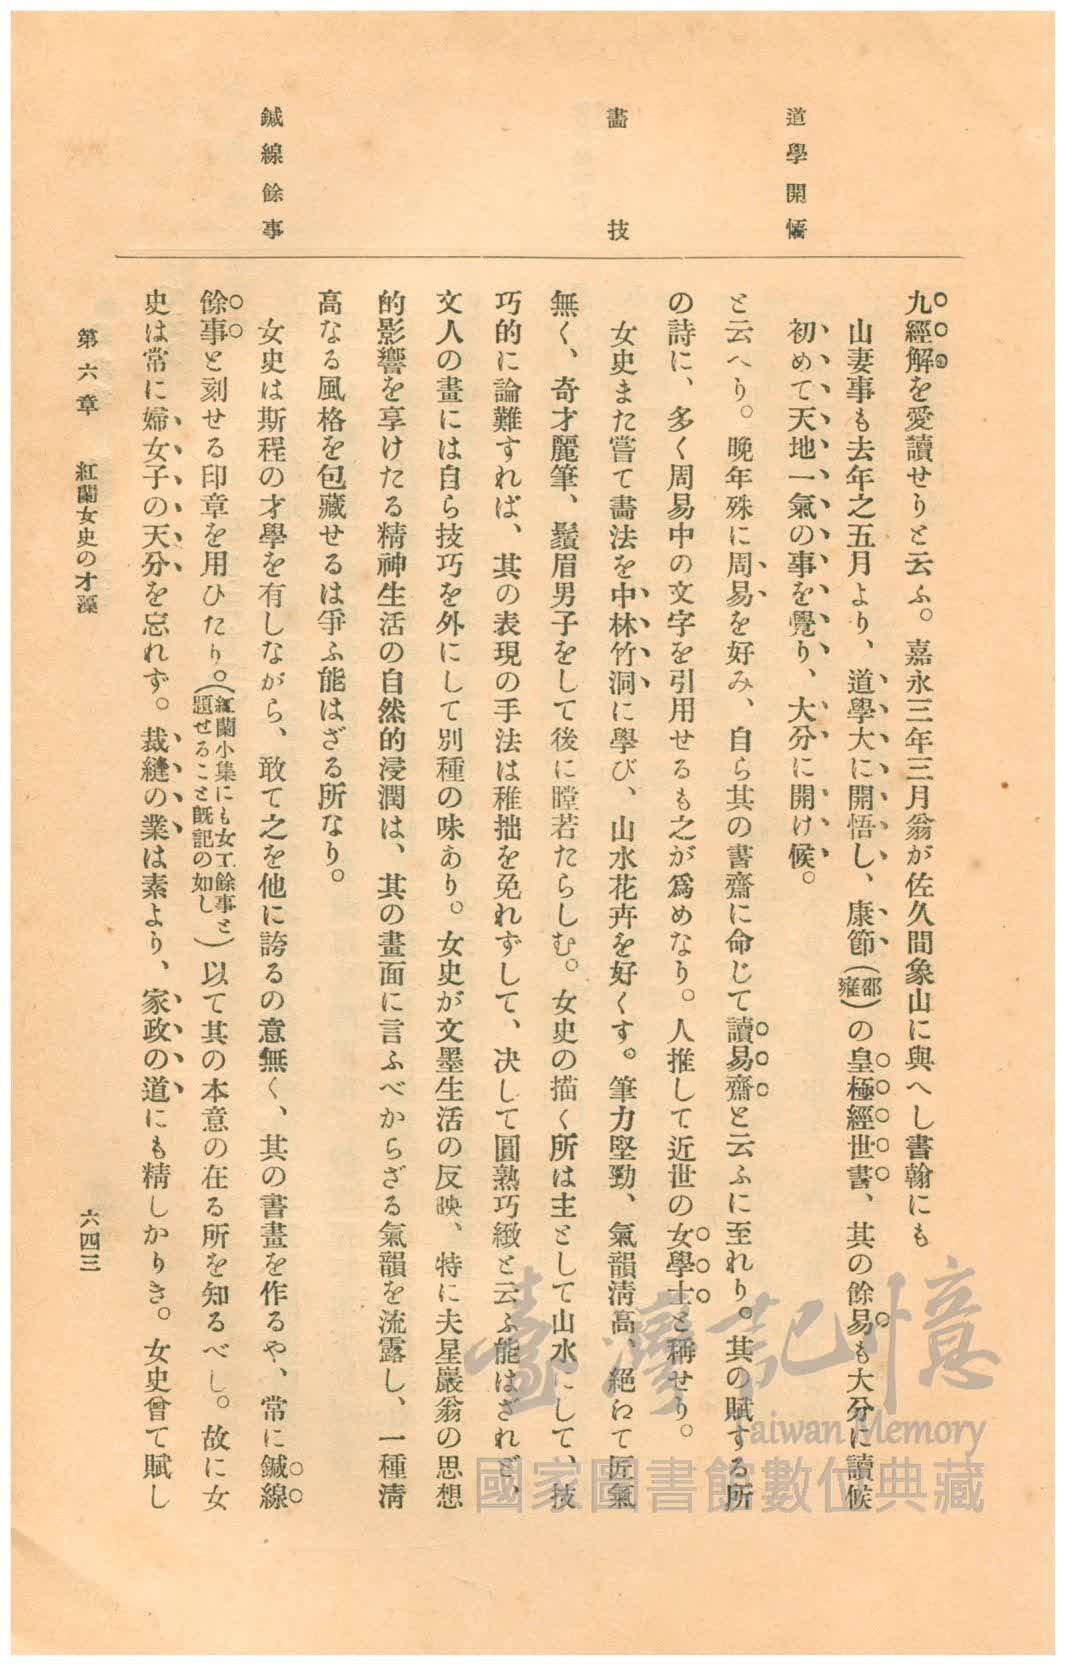 道學開悟
畫技
鍼線餘事
九經解を愛讀せりと云ふ。嘉永三年三月翁が佐久間象山に與へし書翰にも
山妻事も去年之五月より、道學大に開悟し、康節(邵雍)の皇極經世書、其の餘易も大分に讀候
初めて天地一氣の事を覺り、大分に開け候。
と云へり。晩年殊に周易を好み、自ら其の書齋に命じて讀易齋と云ふに至れり。其の賦する所
の詩に、多く周易中の文字を引用せるも之が爲めなり。人推して近世の女學士と稱せり。
女史また嘗て畫法を中林竹洞に學び、山水花卉を好くす。筆力堅勁、氣韻淸高、絕江て匠氣
無く、奇才麗筆、鬚眉男子をして後に瞠若たらしむ。女史の描く所は主として山水にして、技
巧的に論難すれば、其の表現の手法は稚拙を免れずして、決して圓熟巧緻と云ふ能はざれど、
文人の畫には自ら技巧を外にして別種の味あり。女史が文墨生活の反映、特に夫星巖翁の思想
的影響を享けたる精神生活の自然的浸潤は、其の畫面に言ふべからざる氣韻を流露し、一種淸
高なる風格を包藏せるは爭ふ能はざる所なり。
女史は斯程の才學を有しながら、敢て之を他に誇るの意無く、其の書畫を作るや、常に鍼線
餘事と刻せる印章を用ひたり。(紅蘭小集にも女工餘事と題せること既記の如し)以て其の本意の在る所を知るべし。故に女
史は常に婦女子の天分を忘れず。裁縫の業は素より、家政の道にも精しかりき。女史曾て賦し
第六章 紅蘭女史の才藻
六四三
臺灣記憶
Taiwan Memory
國家圖書館數位典藏